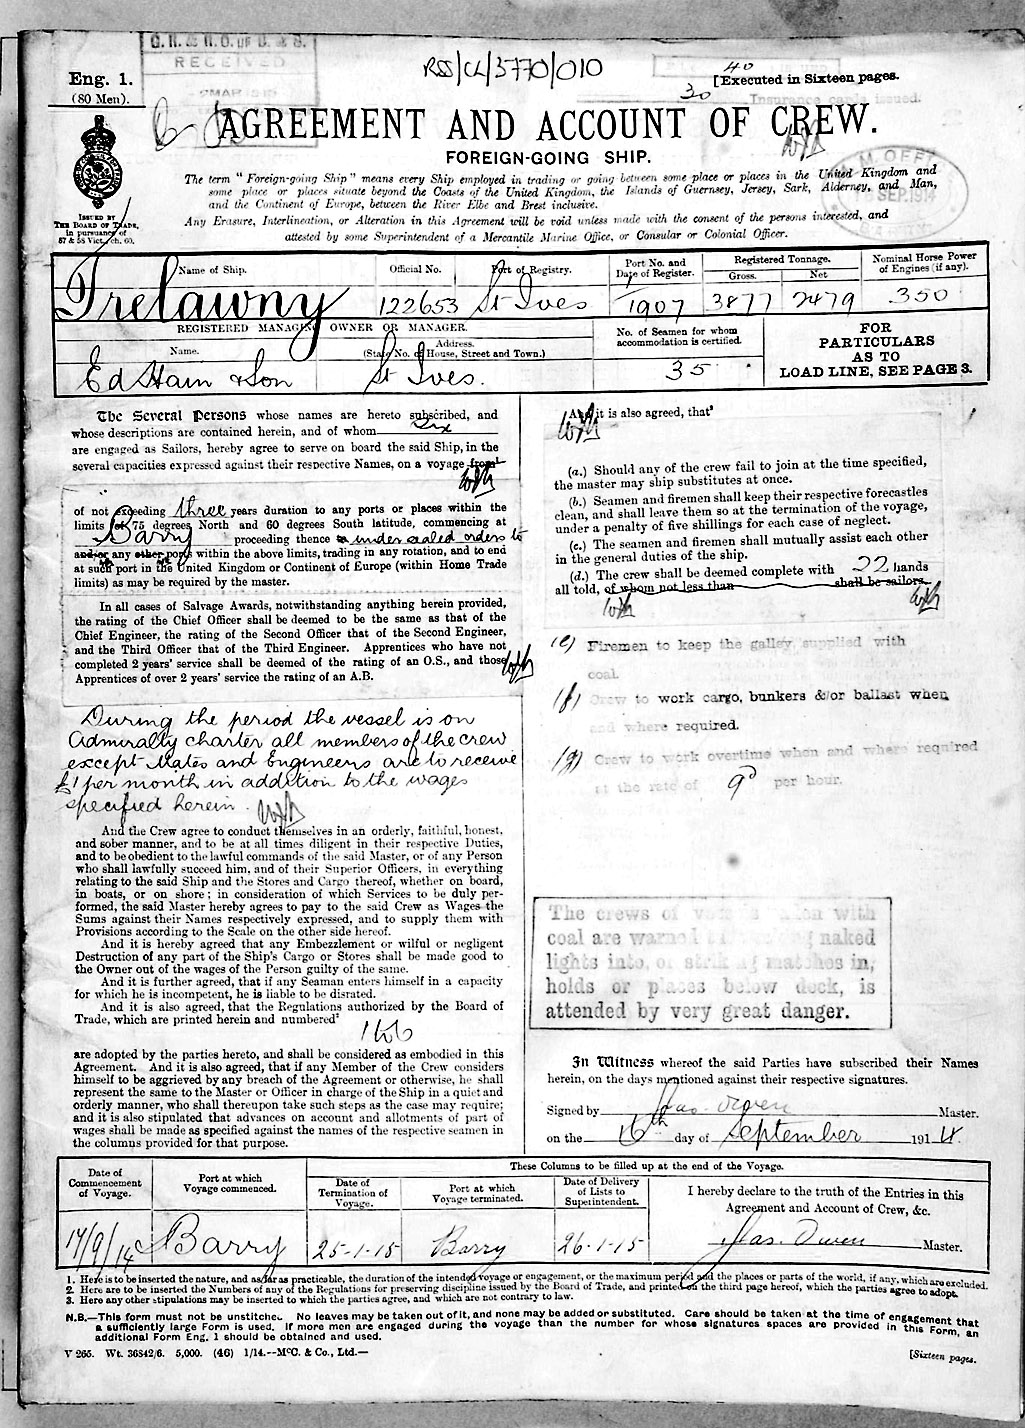 RSS/CL/3770/010
RECEIVED
Eng. 1.
(80 Men).
40
30
[Executed in Sixteen pages.
Insurance card issued.
AGREEMENT AND ACCOUNT OF CREW.
FOREIGN-GOING SHIP.
The term "Foreign-going Ship" means every Ship employed in trading or going between some place or places in the United Kingdom and
some place or places situate beyond the Coasts of the United Kingdom, the Islands of Guernsey, Jersey, Sark, Alderney, and Man,
and the Continent of Europe, between the River Elbe and Brest inclusive.
Any Erasure, Interlineation, or Alteration in this Agreement will be void unless made with the consent of the persons interested, and
attested by some Superintendent of a Mercantile Marine Office, or Consular or Colonial Officer.
M. M. OFFICE
SEP. 1914
BARRY
ISSUED BY
THE BOARD OF TRADE,
in pursuance of
57 & 58 Vict., ch. 60.
Name of Ship.
Official No.
Port of Registry.
Port No. and
Date of Register.
Registered Tonnage.
Gross.
Net
Nominal Horse Power
of Engines (if any).
Trelawny
122653
St Ives
1/1907
3877
2479
350
REGISTERED MANAGING OWNER OR MANAGER.
Name.
Address.
(State No. of House, Street and Town.)
No. of Seamen for whom
accommodation is certified.
FOR
PARTICULARS
AS TO
LOAD LINE, SEE PAGE 3.
Ed Hain & Son
St Ives.
35
The Several Persons whose names are hereto subscribed, and
whose descriptions are contained herein, and of whom six
are engaged as Sailors, hereby agree to serve on board the said Ship, in the
several capacities expressed against their respective Names, on a voyage from¹
of not exceeding three years duration to any ports or places within the
limits of 75 degrees North and 60 degrees South latitude, commencing at
Barry proceeding thence under sealed orders to
and/or any other ports within the above limits, trading in any rotation, and to end
at such port in the United Kingdom or Continent of Europe (within Home Trade
limits) as may be required by the master.
In all cases of Salvage Awards, notwithstanding anything herein provided,
the rating of the Chief Officer shall be deemed to be the same as that of the
Chief Engineer, the rating of the Second Officer that of the Second Engineer,
and the Third Officer that of the Third Engineer. Apprentices who have not
completed 2 years' service shall be deemed of the rating of an O.S., and those
Apprentices of over 2 years' service the rating of an A.B.
During the period the vessel is on
Admiralty charter all members of the crew
except Mates and Engineers are to receive
£1 per month in addition to the wages
specified herein.
And the Crew agree to conduct themselves in an orderly, faithful, honest,
and sober manner, and to be at all times diligent in their respective Duties,
and to be obedient to the lawful commands of the said Master, or of any Person
who shall lawfully succeed him, and of their Superior Officers, in everything
relating to the said Ship and the Stores and Cargo thereof, whether on board,
in boats, or on shore; in consideration of which Services to be duly per-
formed, the said Master hereby agrees to pay to the said Crew as Wages the
Sums against their Names respectively expressed, and to supply them with
Provisions according to the Scale on the other side hereof.
And it is hereby agreed that any Embezzlement or wilful or negligent
Destruction of any part of the Ship's Cargo or Stores shall be made good to
the Owner out of the wages of the Person guilty of the same.
And it is further agreed, that if any Seaman enters himself in a capacity
for which he is incompetent, he is liable to be disrated.
And it is also agreed, that the Regulations authorized by the Board of
Trade, which are printed herein and numbered²
1 to 6
are adopted by the parties hereto, and shall be considered as embodied in this
Agreement. And it is also agreed, that if any Member of the Crew considers
himself to be aggrieved by any breach of the Agreement or otherwise, he shall
represent the same to the Master or Officer in charge of the Ship in a quiet and
orderly manner, who shall thereupon take such steps as the case may require;
and it is also stipulated that advances on account and allotments of part of
wages shall be made as specified against the names of the respective seamen in
the columns provided for that purpose.
And it is also agreed, that³
(a.) Should any of the crew fail to join at the time specified,
the master may ship substitutes at once.
(b.) Seamen and firemen shall keep their respective forecastles
clean, and shall leave them so at the termination of the voyage,
under a penalty of five shillings for each case of neglect.
(c.) The seamen and firemen shall mutually assist each other
in the general duties of the ship.
(d.) The crew shall be deemed complete with 22 hands
all told, of whom not less than shall be sailors.
(e) Firemen to keep the galley supplied with
coal.
(f) Crew to work cargo, bunkers &/or ballast when
and where required.
(g) Crew to work overtime when and where required
at the rate of 9d per hour.
The crews of vessels laden with
coal are warned that taking naked
lights into, or striking matches in,
holds or places below deck, is
attended by very great danger.
In Witness whereof the said Parties have subscribed their Names
herein, on the days mentioned against their respective signatures.
Signed by Jas. Owen Master.
on the 16th day of September 1914.
Date of
Commencement
of Voyage.
Port at which
Voyage commenced.
These Columns to be filled up at the end of the Voyage.
Date of
Termination of
Voyage.
Port at which
Voyage terminated.
Date of Delivery
of Lists to
Superintendent.
I hereby declare to the truth of the Entries in this
Agreement and Account of Crew, &c.
17/9/14
Barry
25-1-15
Barry
26-1-15
Jas. Owen Master.
1. Here is to be inserted the nature, and as far as practicable, the duration of the intended voyage or engagement, or the maximum period and the places or parts of the world, if any, which are excluded.
2. Here are to be inserted the Numbers of any of the Regulations for preserving discipline issued by the Board of Trade, and printed on the third page hereof, which the parties agree to adopt.
3. Here any other stipulations may be inserted to which the parties agree, and which are not contrary to law.
N.B.—This form must not be unstitched. No leaves may be taken out of it, and none may be added or substituted. Care should be taken at the time of engagement that
a sufficiently large Form is used. If more men are engaged during the voyage than the number for whose signatures spaces are provided in this Form, an
additional Form Eng. 1 should be obtained and used.
V 265. Wt. 36842/6. 5,000. (46) 1/14.--McC. & Co., Ltd.—
[Sixteen pages.